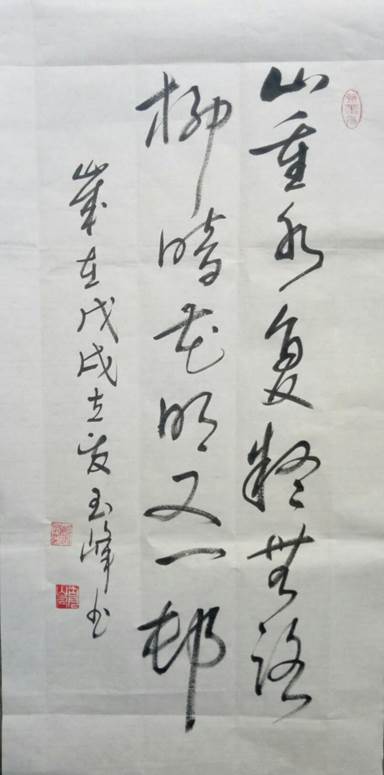 山重水复疑無路
柳暗花明又一邨
歲在戊戌立夏玉峰书